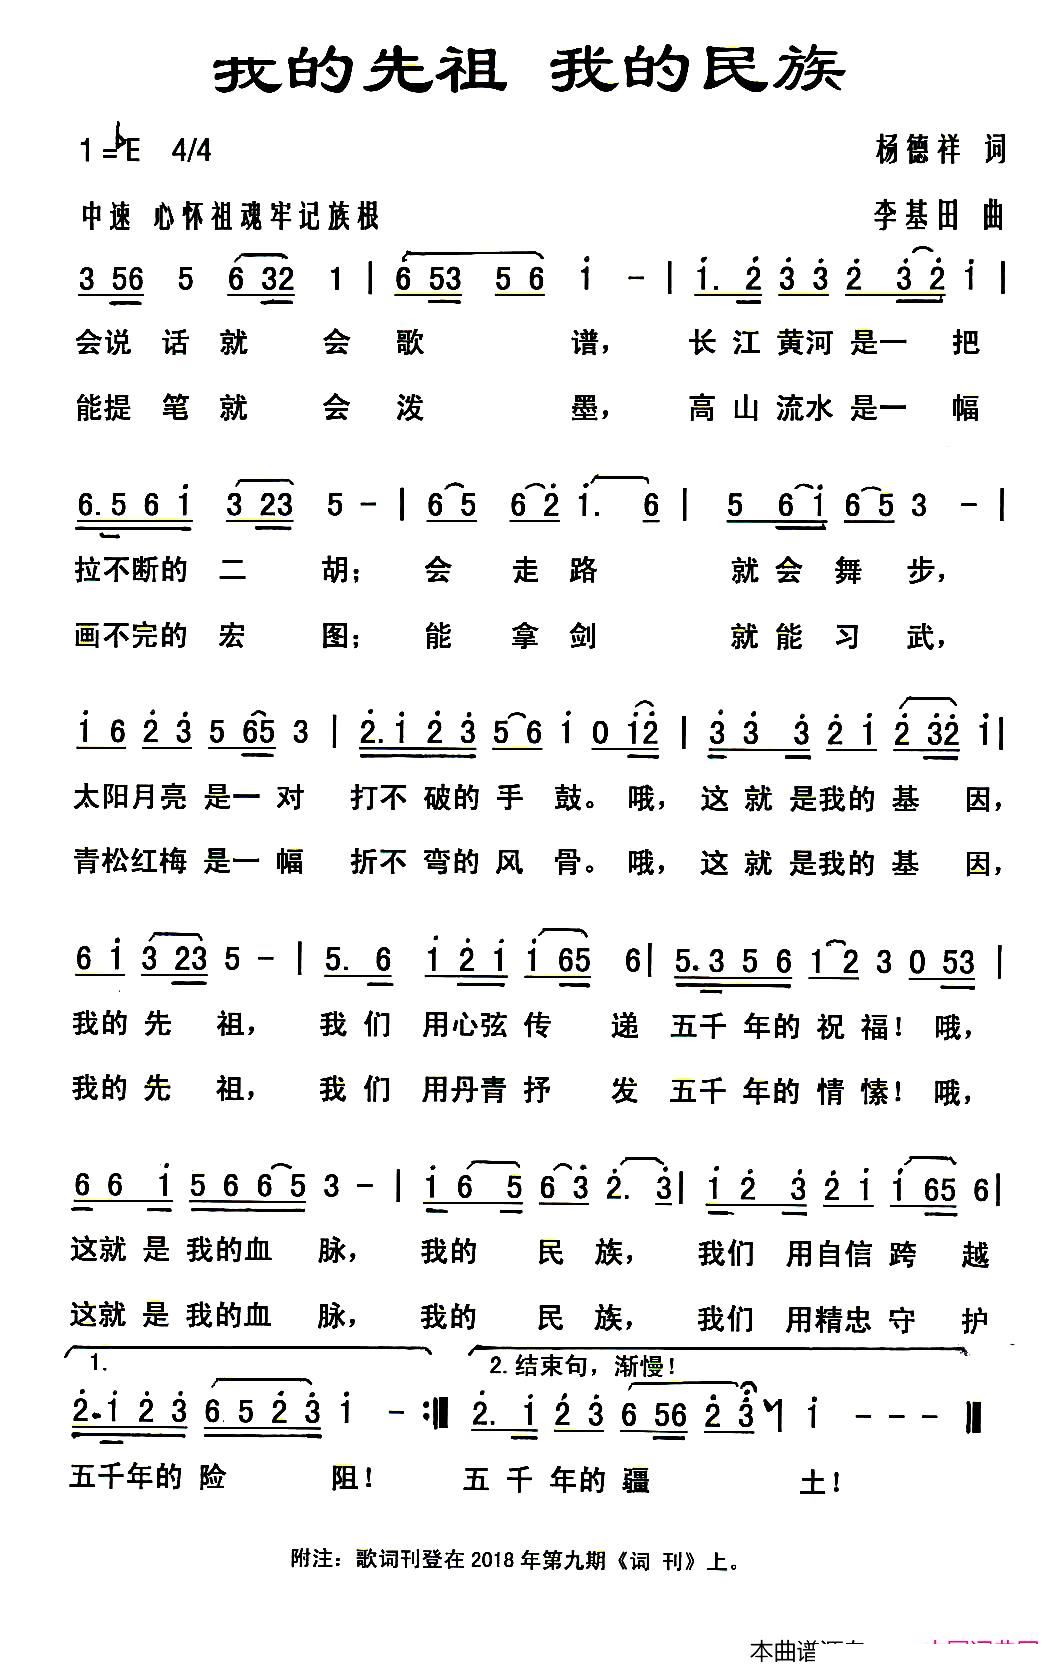 我的先祖 我的民族
1=♭E 4/4 杨德祥 词
中速 心怀祖魂牢记族根 李基田 曲
3 56 5 6 32 1 | 6 53 5 6 i - | i. 2 3 3 2 3 2 i |
会说 话 就 会 歌 谱， 长 江 黄河 是一 把
能提 笔 就 会 泼 墨， 高 山 流水 是一 幅
6.5 6 i 3 23 5 - | 6 5 6 2 i. 6 | 5 6 i 6 5 3 - |
拉不断的 二 胡； 会 走 路 就 会 舞 步，
画不完的 宏 图； 能 拿 剑 就 能 习 武，
i 6 2 3 5 65 3 | 2.i 2 3 5 6 i 0 i2 | 3 3 3 2 i 2 32 i |
太阳月亮 是一 对 打不 破的 手 鼓。哦， 这 就 是我的 基 因，
青松红梅 是一 幅 折不 弯的 风 骨。哦， 这 就 是我的 基 因，
6 i 3 23 5 - | 5. 6 i 2 i i 65 6 | 5.3 5 6 1 2 3 0 53 |
我的 先 祖， 我 们 用心弦 传 递 五千 年的 祝 福！哦，
我的 先 祖， 我 们 用丹青 抒 发 五千 年的 情 愫！哦，
6 6 i 5 6 6 5 3 - | i 6 5 6 3 2. 3 | i 2 3 2 i i 65 6 |
这就 是 我的血 脉， 我的 民 族， 我们 用自信 跨 越
这就 是 我的血 脉， 我的 民 族， 我们 用精忠 守 护
1. 2.结束句，渐慢！
2.i 2 3 6 5 2 3 i - :‖ 2. i 2 3 6 56 2 3 i - - - ‖
五千年的 险 阻！ 五 千 年的 疆 土！
附注：歌词刊登在2018年第九期《词 刊》上。
本曲谱